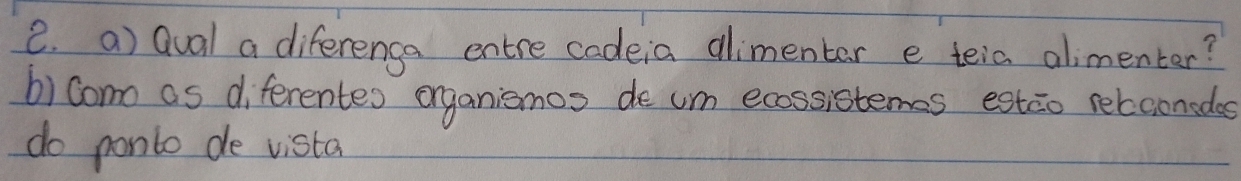 2. a) Qual a diferença entre cadeia alimentar e teia alimentar?
b) Como as diferentes organismos de um ecossistemas estão relacionados
do ponto de vista